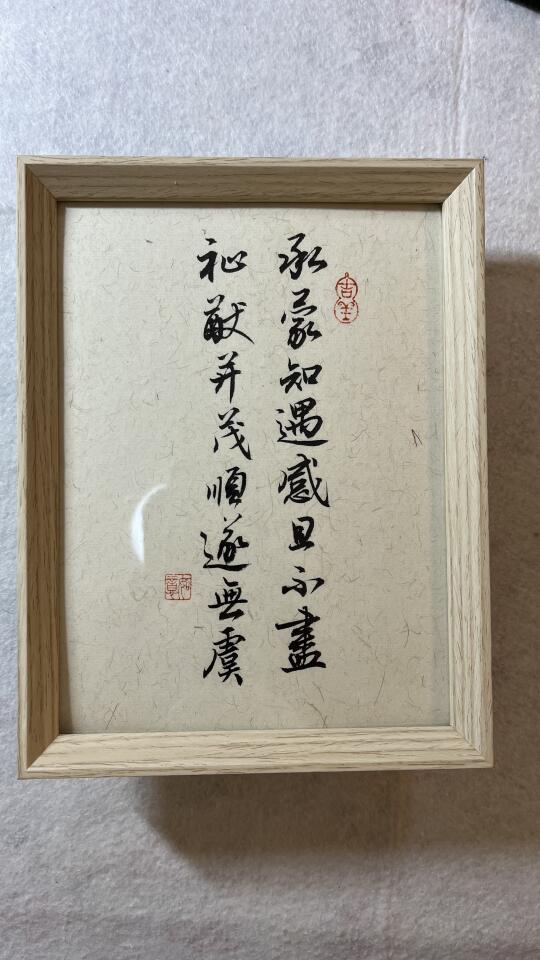 承蒙知遇感且不盡
祉猷并茂順遂無虞
吉羊